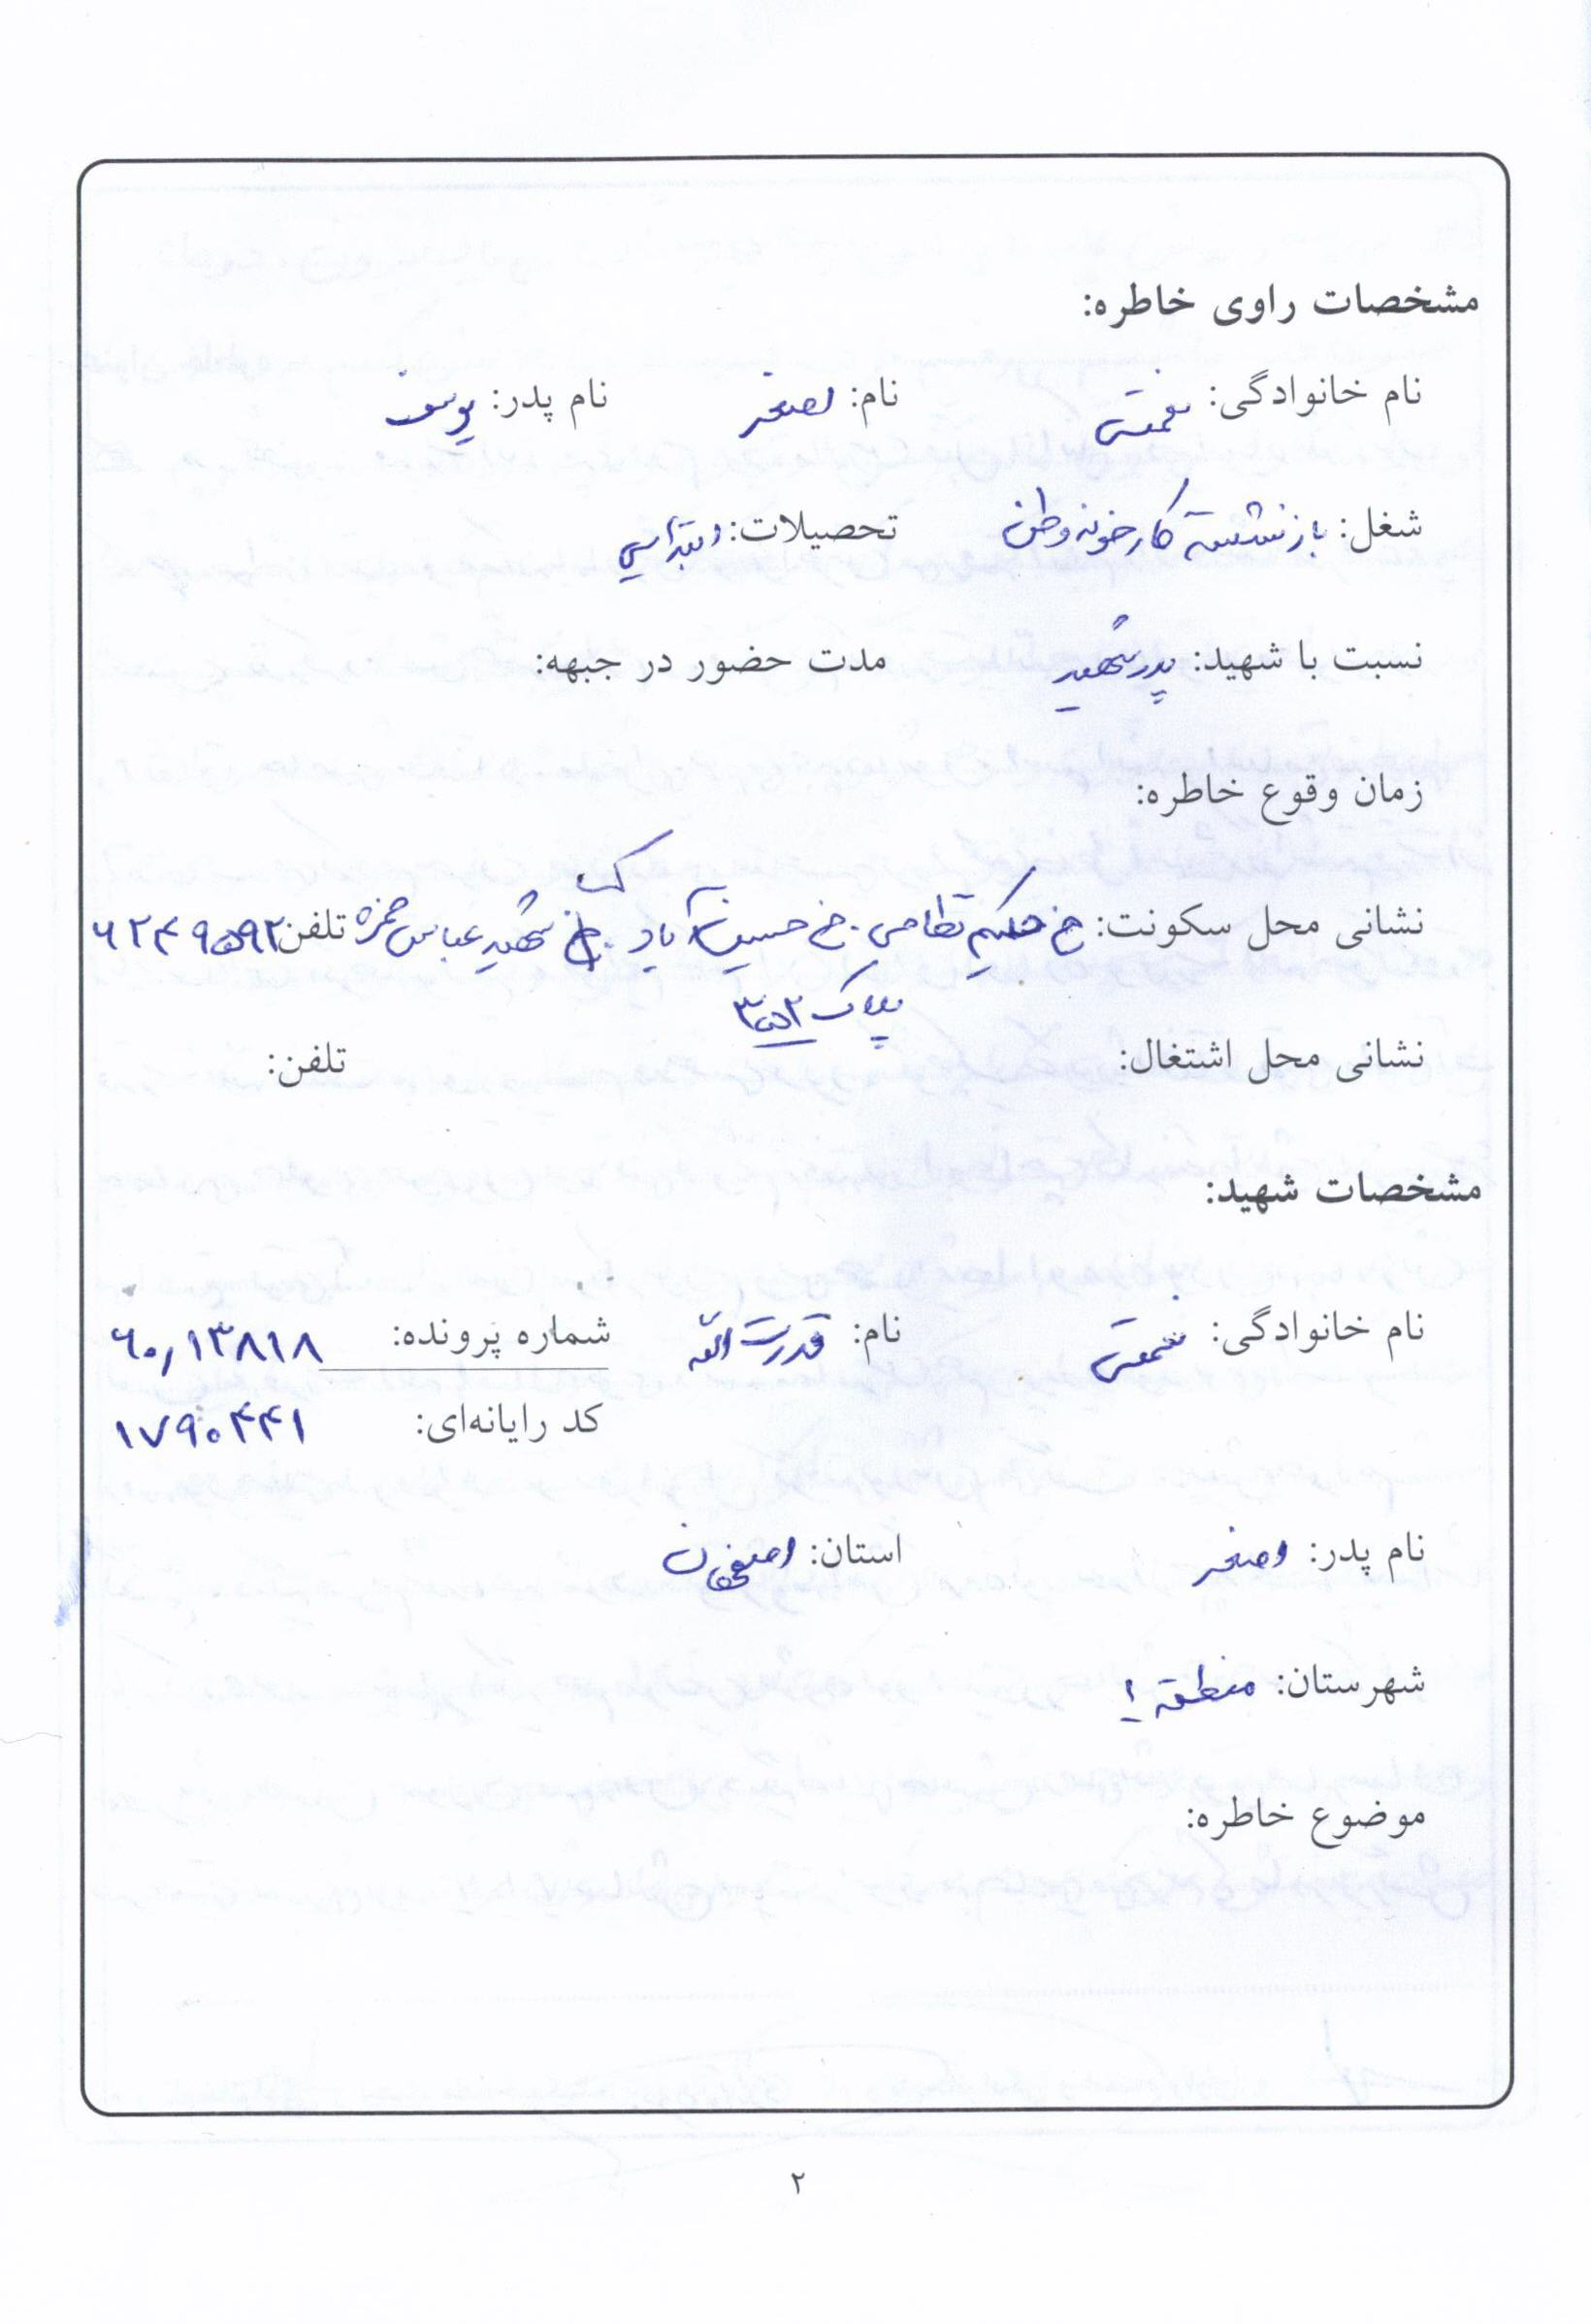 مشخصات راوی خاطره:
نام خانوادگی: نعمتی نام: اصغر نام پدر: یوسف
شغل: بازنشسته کارخونه وطن تحصیلات: ابتدایی
نسبت با شهید: پدر شهید مدت حضور در جبهه:
زمان وقوع خاطره:
نشانی محل سکونت: خ حکیم نظامی . خ حسین آباد . ک شهید عباس حمزه تلفن ۶۲۴۹۵۹۲
پلاک ۳۵۲
نشانی محل اشتغال: تلفن:
مشخصات شهید:
نام خانوادگی: نعمتی نام: قدرت اله شماره پرونده: ۶۰,۱۳۸۱۸
کد رایانه‌ای: ۱۷۹۰۴۴۱
نام پدر: اصغر استان: اصفهان
شهرستان: منطقه ۱
موضوع خاطره:
۲